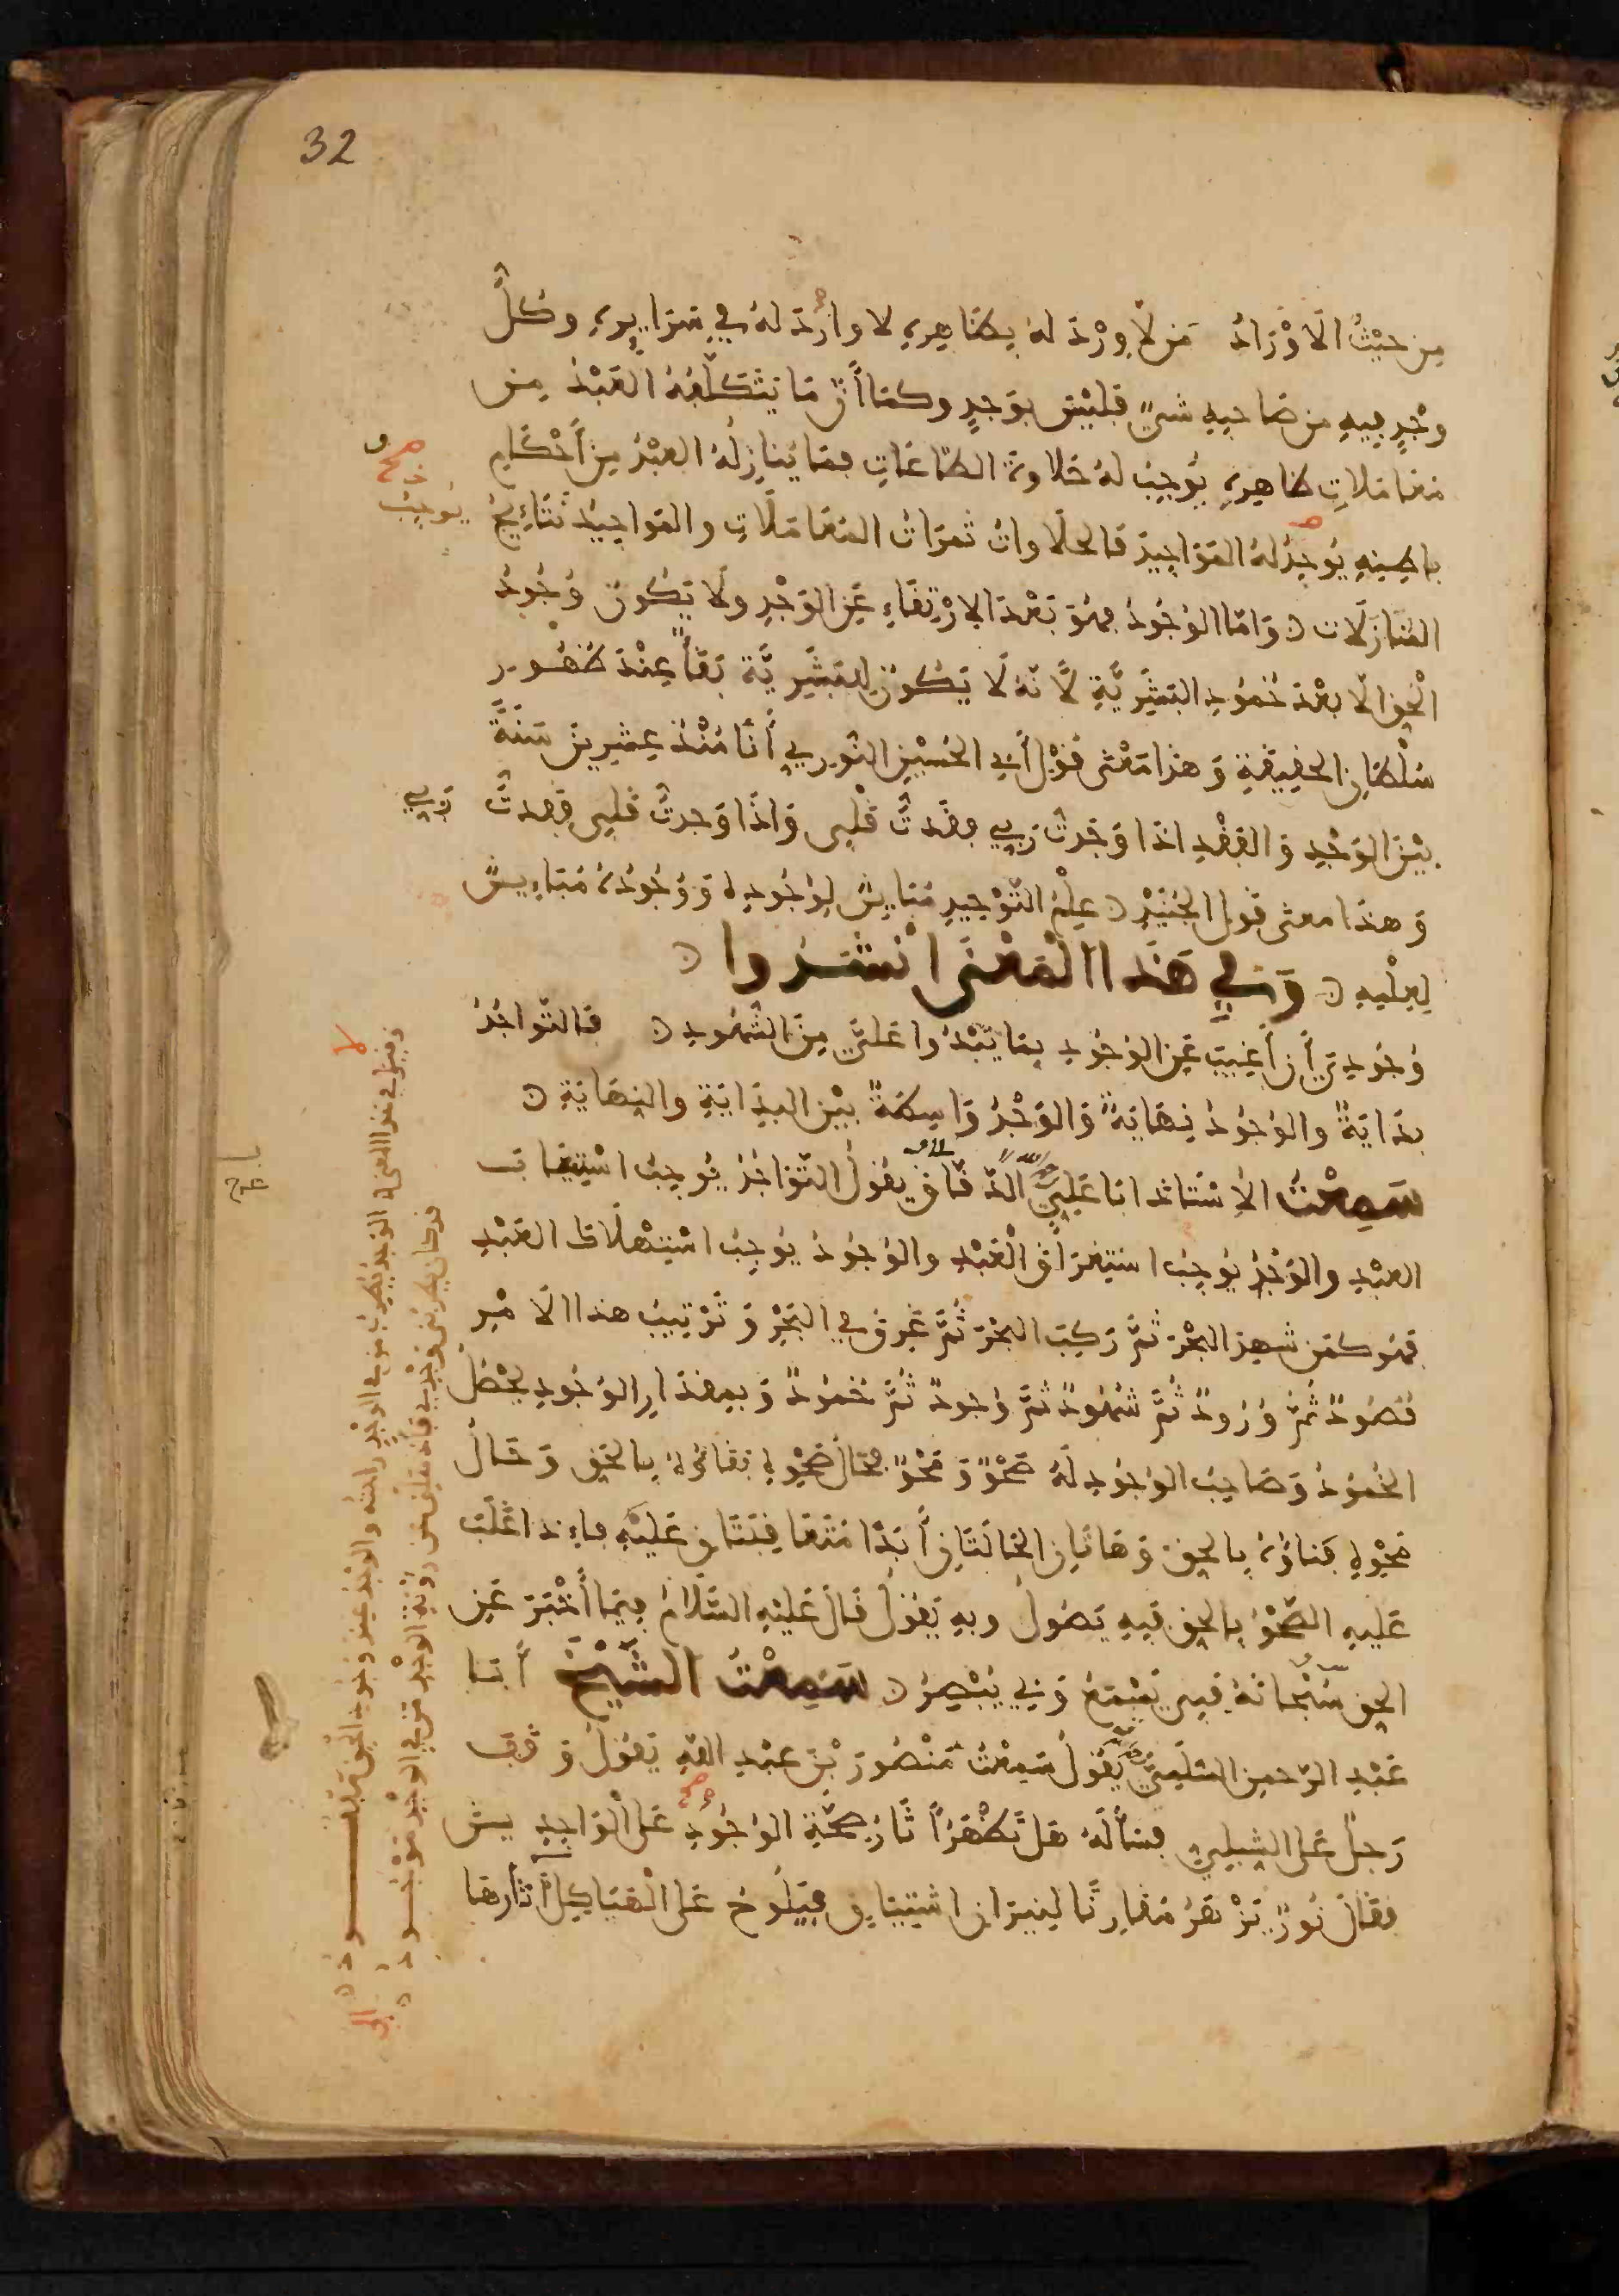 32
مِن حَيْثُ الَاوْرَادُ مَن لَا وِرْدَ لهُ بِظَاهِرِهِ لا وارِدَ لهُ فِي سَرَايِرِهِ وكلُّ
وجْدٍ فيهِ من صَاحبِهِ شيٌ فليْسَ بوَجدٍ وكمَا أنّ مَا يَتَكَلَّفهُ العَبْدُ مِن
مُعَامَلاتِ ظَاهِرِهِ يُوجبُ لهُ حَلاوةَ الطّاعَاتِ فمَا يُنازِلُهُ العبْدُ مِن أَحْكَامِ
صح
يوجب
باطِنِهِ يُوجدُ لهُ المَوَاجِيدَ فالحلَاواتُ ثمَرَاتُ المُعَامَلَاتِ والمَوَاجِيدُ نَتَائِجُ
المُنَازَلَات وَامّا الوُجُودُ فهُوَ بَعْدَ الارْتِقَاءِ عَنِ الوَجْدِ ولَا يَكُونُ وُجُودُ
الْحَقِ الَّا بعْدَ خُمُودِ البَشَرِيَّةِ لَأَنّهُ لَا يَكُونُ لِلبَشَرِيَّةِ بَقَأٌ عِنْدَ ظهُور
سُلْطَانِ الحَقِيقةِ وَهذا مَعْنَى قَوْلِ أبي الحُسَيْنِ النُّورِيِ أنَا مُنْذُ عِشرِينَ سَنَةً
بيْنَ الوَجْدِ وَالفَقْدِ اذَا وَجَدتُ رَبِي فقَدتُ قلبِى وَاذَا وَجدتُ قلبِى فقدتُّ رَبِي
وَهذَا معنى قول الجُنَيْدِ عِلْمُ التَّوْحِيدِ مُبَايِنٌ لِوُجُودِهِ وَوُجُودُهُ مُبَايِنٌ
لِعِلْمِهِ وَفِي هَذَا الْمَعْنَى انْشَدُوا
وُجُودِيَ أن أَغِيبَ عَنِ الوُجُودِ بمَا يَبْدُوا عَلَيَّ مِنَ الشُّهُودِ فَالتَّواجُدُ
بدَايَةٌ والوُجُودُ نِهَايَةٌ وَالوَجْدُ وَاسِطةٌ بيْنَ البِدَايَةِ والنِهَايَةِ
سَمِعْتُ الاسْتَاذ ابَا عَلِيٍّ الدَّقَّاقَ يقُولُ التَّوَاجُدُ يُوجِبُ اسْتِيعَابَ
العبْدِ والوَجْدُ يُوجِبُ اسْتِغرَاقَ الْعَبْدِ والوُجُودُ يُوجِبُ اسْتِهْلَاكَ العَبْدِ
فهُو كمَن شهِدَ البحْرَ ثمَّ رَكِبَ البحْرَ ثُمَّ غَرِقَ فِي البَحْرِ وَتَرْتِيبُ هذا الَامْرِ
قصُودٌ ثُمَّ وُرُودٌ ثُمَّ شُهُودٌ ثمَّ وُجودٌ ثُمَّ خُمُودٌ وَبمِقدَارِ الوُجُودِ يَحْصُلُ
الخُمُودُ وَصَاحِبُ الوُجُودِ لهُ صَحْوٌ وَمَحْوٌ فحَالُ صَحْوِهِ بَقَاؤُهُ بِالحَقِ وَحَالُ
مَحْوِهِ فنَاؤُهُ بِالحقِ وَهَاتَانِ الحَالَتَانِ أَبَدًا مُتَعَاقِبَتَانِ عَلَيْهِ فاءِذا غَلَبَ
عَليهِ الصَّحْوُ بِالحقِ فبِهِ يَصُولُ وبهِ يَقُولُ قالَ عَليْهِ السَّلَامُ فِيمَا أَخْبَرَ عَنِ
الحقِ سُبْحَانَهُ فبِى يَسْمَعُ وَبِي يُبْصِرُ سَمِعْتُ الشَّيْخَ أبَا
عَبْدِ الرّحمنِ السُّلَمِيَّ يَقُولُ سَمِعْتُ مَنْصُورَ بْنَ عبْدِ اللهِ يَقُولُ وَقفَ
رَجلٌ عَلى الشِبلِيِ فسَألَهُ هَل تَظْهَرُ أَثَارُ صِحَّةِ الوُجُودِ عَلى الْوَاجِدِينَ
فقالَ نُورٌ يَزْهَرُ مُقَارِنًا لِنِيرَانِ اشْتِيَاقٍ فيَلُوحُ عَلى الْهَيَاكِلِ أَثَارُهَا